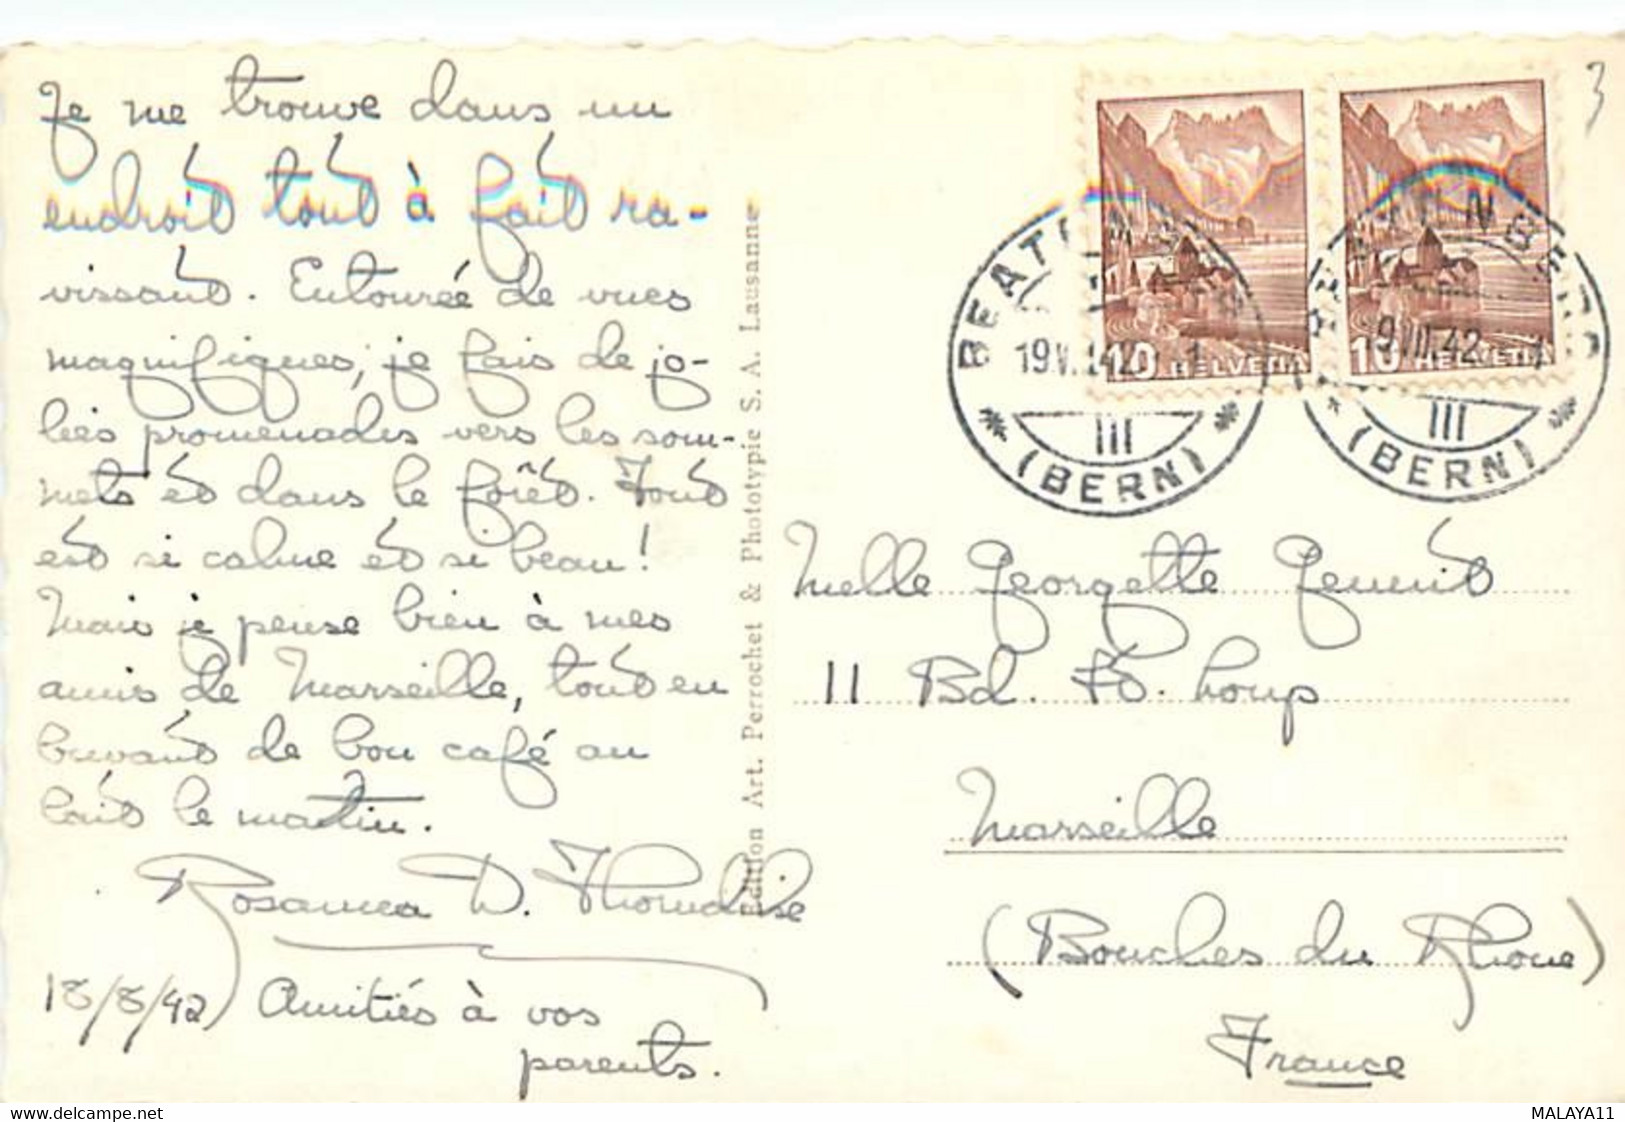 Je me trouve dans un
endroit tout à fait ra-
vissant. Entourée de vues
magnifiques, je fais de jo-
lies promenades vers les som-
mets et dans la forêt. Tout
est si calme et si beau!
Mais je pense bien à mes
amis de Marseille, tout en
buvant de bon café au
lait le matin.
18/8/42) Amitiés à vos
parents.
Edition Art. Perrochet & Phototypie S. A. Lausanne
3
19.VIII.42
10 HELVETIA
10 HELVETIA
III
III
(BERN)
(BERN)
Melle Georgette
11 Bd. St. Loup
Marseille
(Bouches du Rhone)
France
delcampe.net
MALAYA11